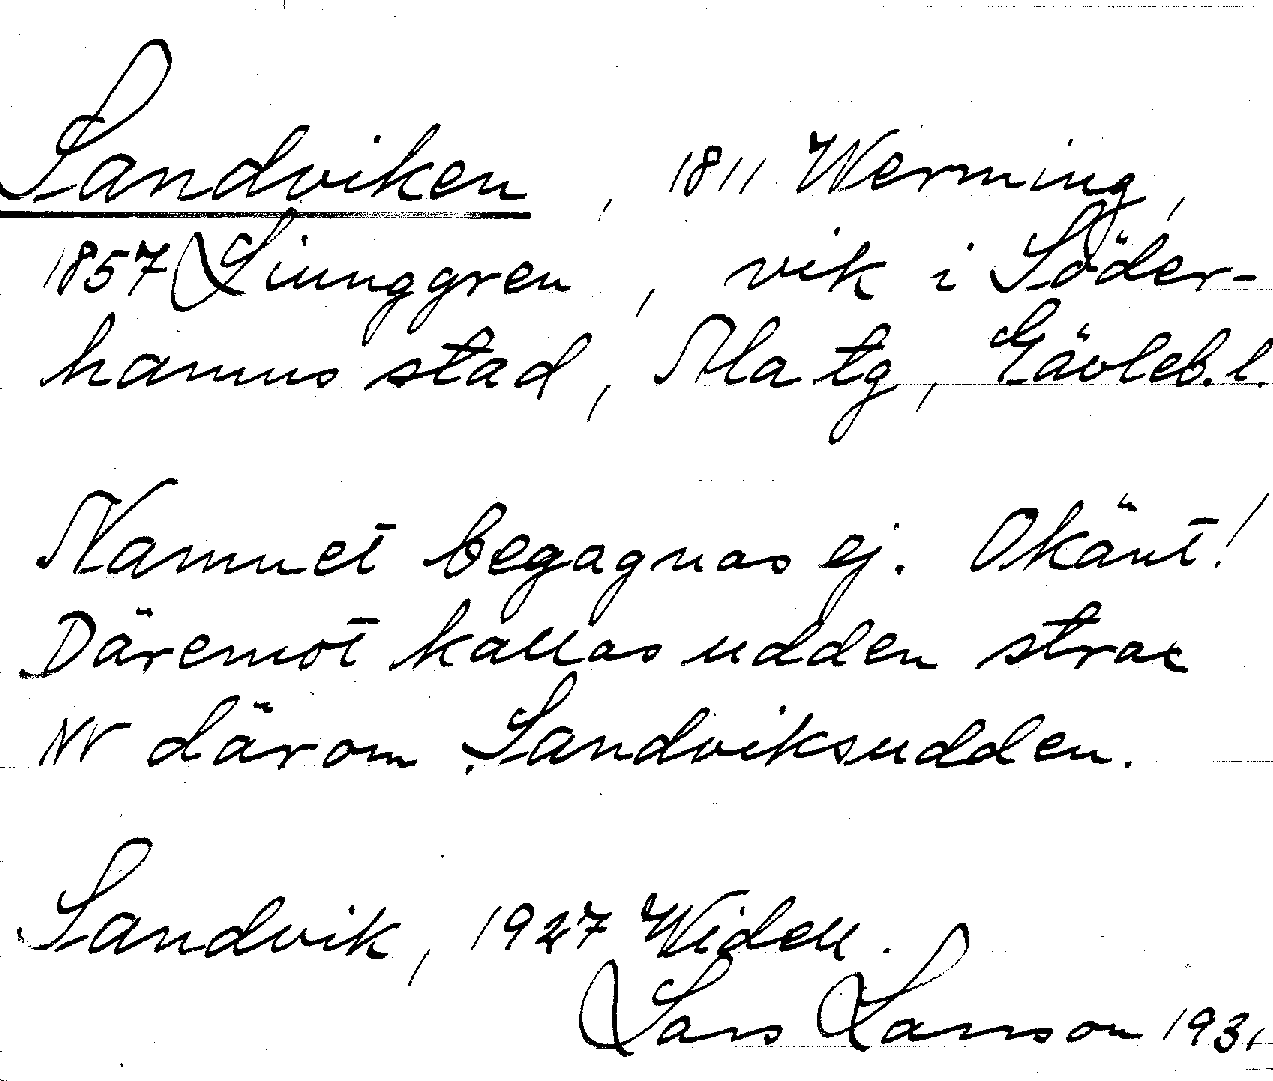 Sandviken, 1811 Werming,
1857 Ljunggren, vik i Söder-
hamns stad, Ala tg, Gävleb. l.
Namnet begagnas ej. Okänt!
Däremot kallas udden strax
NV därom Sandviksudden.
Sandvik, 1927 Widell.
Lars Larsson 1931